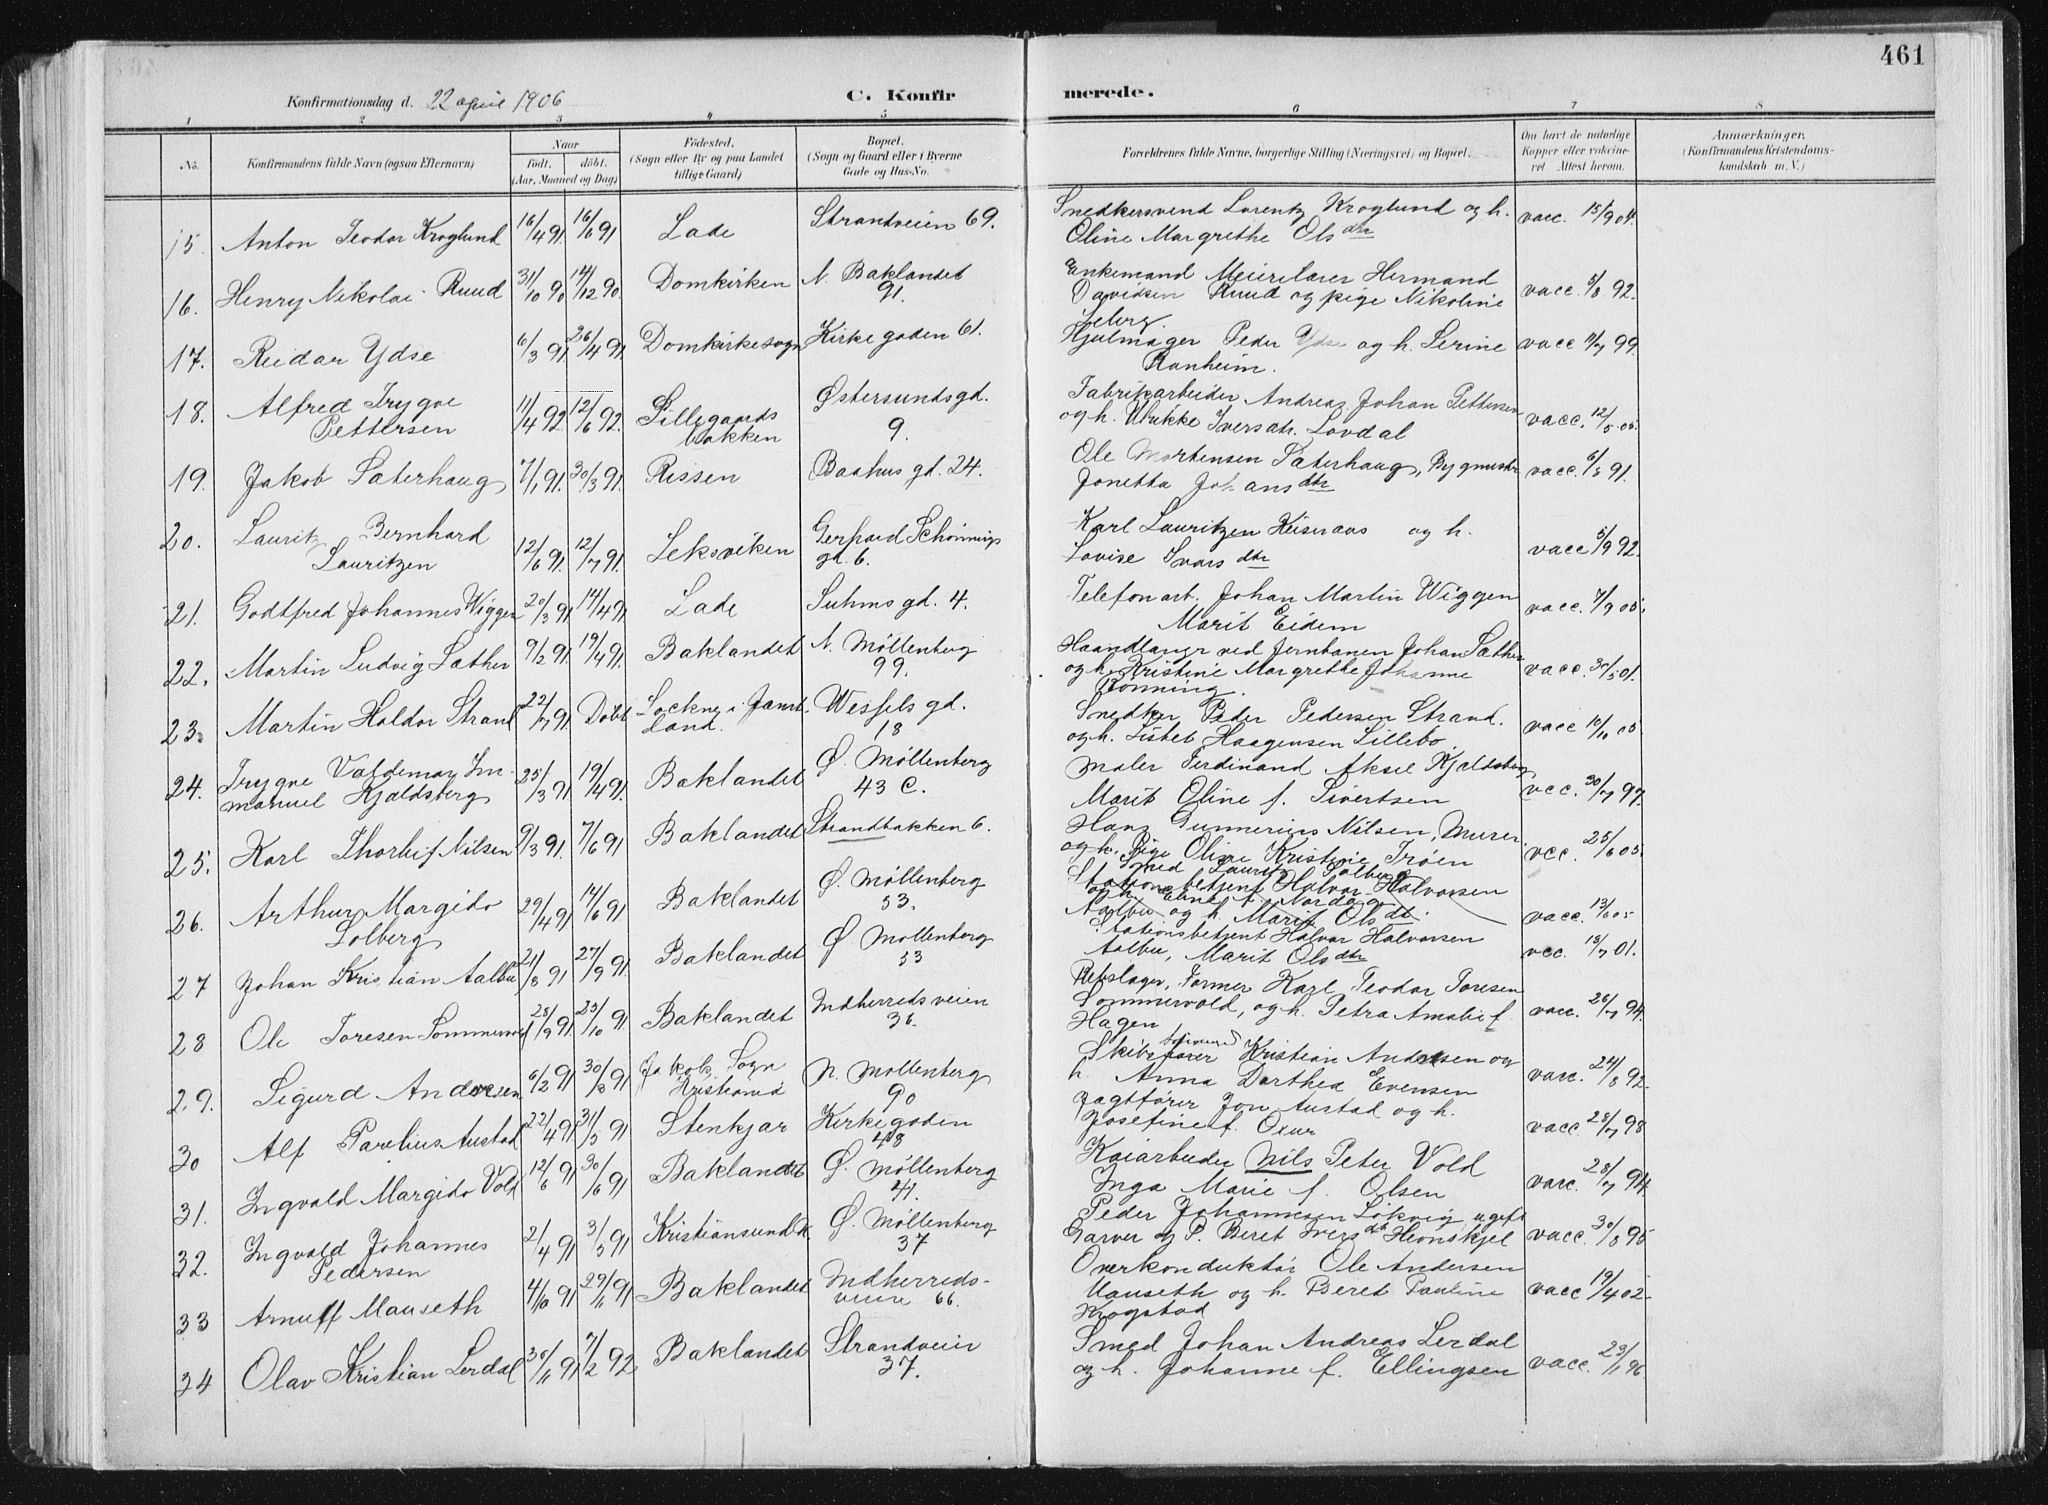 461
Konfirmationsdag d. 22 april 1906
C. Konfirmerede.
1 2 3 4 5 6 7 8
No.
Konfirmandens fulde Navn (ogsaa Efternavn)
Naar
født. døbt.
(Aar, Maaned og Dag)
Födested.
(Sogn eller By og paa Landet
tillige Gaard)
Bopæl.
(Sogn og Gaard eller i Byerne
Gade og Hus-No.
Forældrenes fulde Navne, borgerlige Stilling (Næringsvei) og Bopæl.
Om havt de naturlige
Kopper eller vakcine-
ret Attest herom.
Anmærkninger,
(Konfirmandens Kristendoms-
kundskab m. V.)
15. Anton Teodor Kroglund 16/4 91. 16/6 91 Lade Strandveien 69. Snedkersvend Lorentz Kroglund og h. vacc. 15/9 04.
Oline Margrethe Olsdtr
16. Henry Nikolai Ruud 31/10 90 14/12 90. Domkirken N. Baklandet 91. Enkemand Meierilærer Hermand vacc. 5/8 92.
Davidsen Ruud og pige Nikoline
17. Reidar Ydse 6/3 91. 26/4 91. Domkirkesogn Kirkegaden 61. Hjulmager Peder Ydse og h. Serine vacc 11/7 99.
Ranheim.
18. Alfred Trygve 11/4 92 12/6 92. Lillegaards Østersundsgd. Fabrikarbeider Andreas Johan Pettersen vacc. 12/5 05.
Pettersen bakken 9. og h. Ulrikke Iversdtr. Lovdal
19. Jakob Sæterhaug 7/1 91. 30/3 91. Rissen Baahus gd. 24. Ole Mortensen Sæterhaug, Bygmester vacc. 6/8 91.
Jonetta Johansdtr
20. Lauritz Bernhard Gerhard Schønnings Karl Lauritzen og h.
Lauritzen 12/6 91. 12/7 91. Leksviken gd. 6. Lovise Ivarsdtr vacc 5/9 92.
21. Godtfred Johannes Wiggen 20/3 91 14/4 91. Lade Suhms gd. 4. Telefonarb. Johan Martin Wiggen vacc. 7/9 05.
Marit Eidem
22. Martin Ludvig Sæther 9/2 91. 19/4 91. Baklandet N. Møllenberg 99. Haandlanger ved Jernbanen Johan Sæther vacc. 30/5 01.
og h. Kristine Margrethe Johanne
Rønning.
23. Martin Haldor Strand 22/7 91 Døbt Lockne i Jämt- Wessels gd. Snedker Peder Pedersen Strand. vacc 10/10 05
land. 18 og h. Lisbet Haagensen Lillebo
24. Trygve Valdemar Im- 25/3 91 19/4 91. Baklandet Ø. Møllenberg Maler Ferdinand Aksel Kjeldsberg vcc. 30/7 97.
manuel Kjeldsberg 43 C. Marit Oline f. Sivertsen
25. Karl Thorleif Nilsen 9/3 91. 7/6 91 Baklandet Strandbakken 6. Hans Gunnerius Nilsen, Murer vcc. 25/6 05.
og h. Pige Oline Kristine Trøen
26. Arthur Margido 29/4 91 14/6 91 Baklandet Ø. Møllenberg Smed Lauritz Solberg
Solberg 53. Stationsbetjent Halvor Halvorsen
Aalbu og h. Marit Olsdtr. vacc. 13/6 05
27 Johan Kristian Aalbu 21/8 91 27/9 91. Baklandet Ø Møllenberg 53 Stationsbetjent Halvor Halvorsen vcc. 13/7 01.
Aalbu, Marit Olsdtr
28 Ole Toresen Sommervold 28/9 91 25/10 91 Baklandet Indherredsveien 36. Rebslager, Former Karl Teodor Toresen vacc. 26/7 94.
Sommervold, og h. Petra Amalie f.
Hagen
29. Sigurd Andersen 6/2 91 30/8 91 Jakob Sogn N. Møllenberg Skibsfører Kristian Andersen og vacc. 24/8 92.
Kristiania 90 h. Anna Dorthea Evensen
30 Alf Parelius Austad 22/4 91 31/5 91 Stenkjær Kirkegaden 48 Jagtfører Jon Austad og h. vacc 28/7 98
Josefine f. Oxur
31. Ingvald Margido Vold 12/6 91 30/6 91 Baklandet Ø. Møllenberg 41. Kaiarbeider Nils Peter Vold vacc. 28/7 94.
Inga Marie f. Olsen
32. Ingvald Johannes 2/4 91 3/5 91 Kristiansund N. Ø. Møllenberg Peder Johannesen Løkvig, ugift
Pedersen 37 Garver og P. Beret Iversdtr Henskjel vacc. 30/8 95
33 Arnulf Mauseth 4/10 91 29/11 91 Baklandet Indherreds- Overkonduktør Ole Andersen vacc 19/4 02.
veien 66. Mauseth og h. Beret Pauline
Krogstad
34 Olav Kristian Lerdal 30/11 91 7/2 92 Baklandet Strandveien Smed Johan Andreas Lerdal vacc. 23/1 96
37. og h. Johanne f. Ellingsen